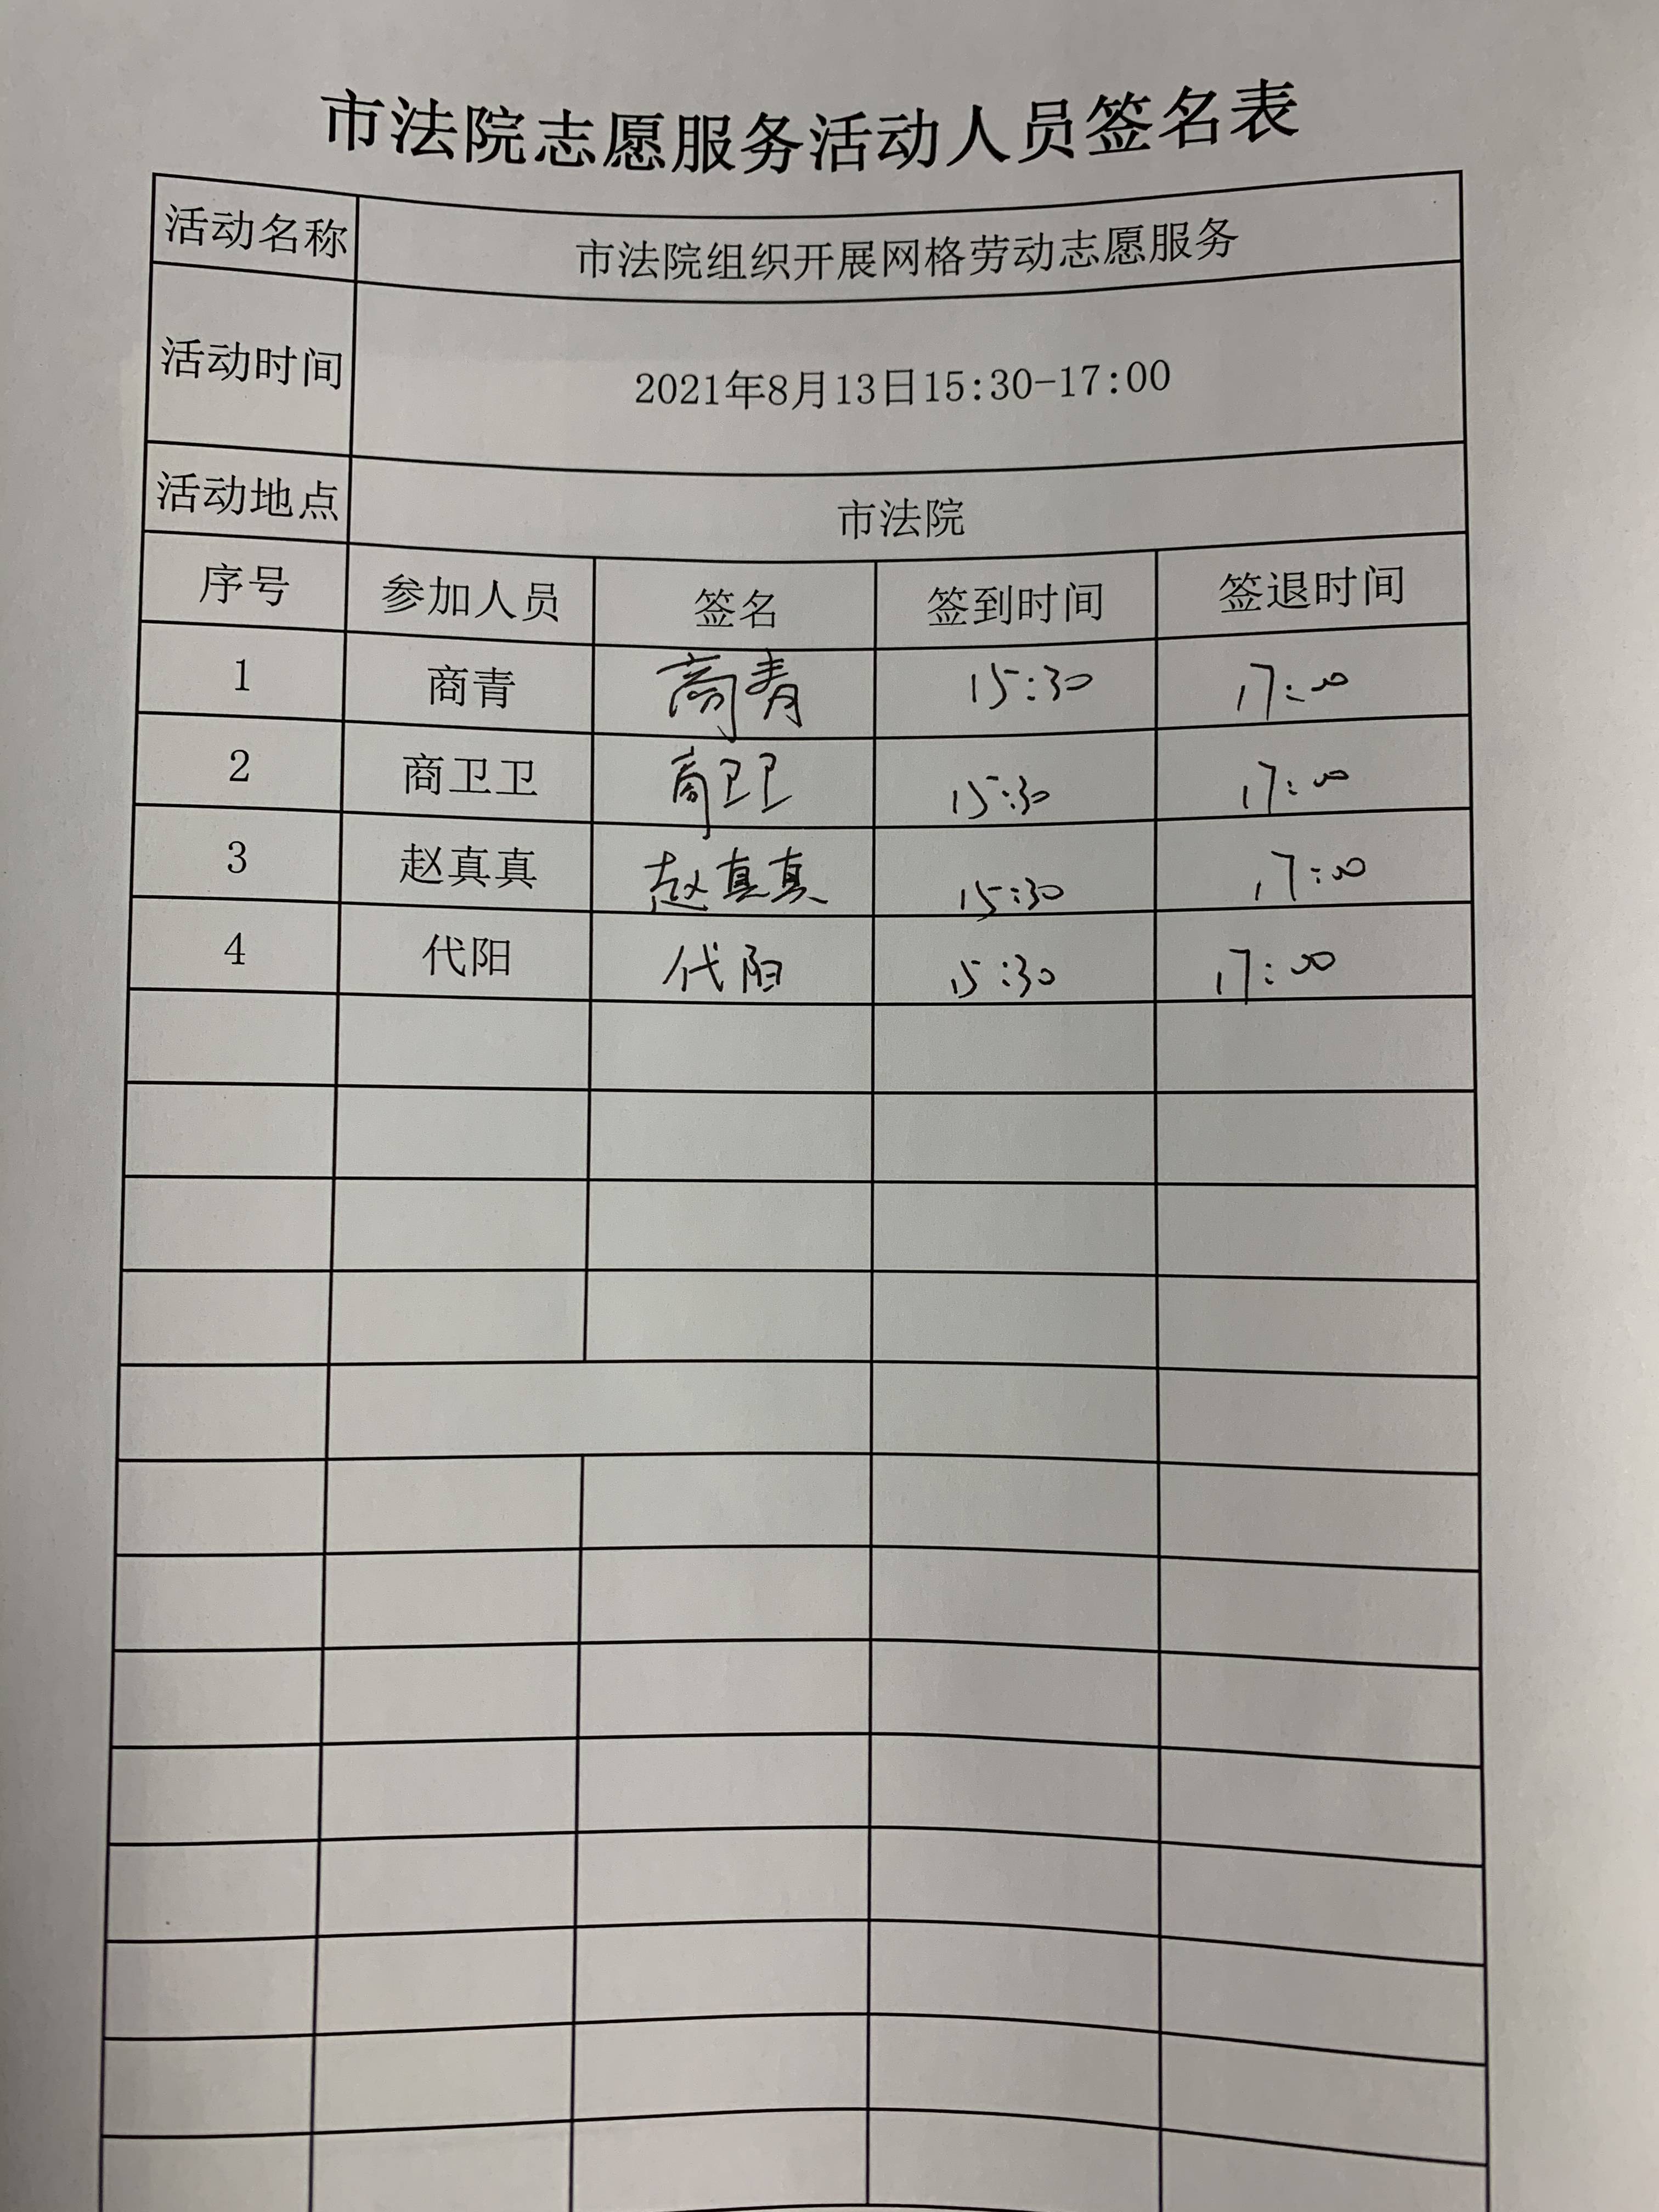 市法院志愿服务活动人员签名表
活动名称 市法院组织开展网格劳动志愿服务
活动时间 2021年8月13日15:30-17:00
活动地点 市法院
序号 参加人员 签名 签到时间 签退时间
1 商青 商青 15:30 17:00
2 商卫卫 商卫卫 15:30 17:00
3 赵真真 赵真真 15:30 17:00
4 代阳 代阳 15:30 17:00